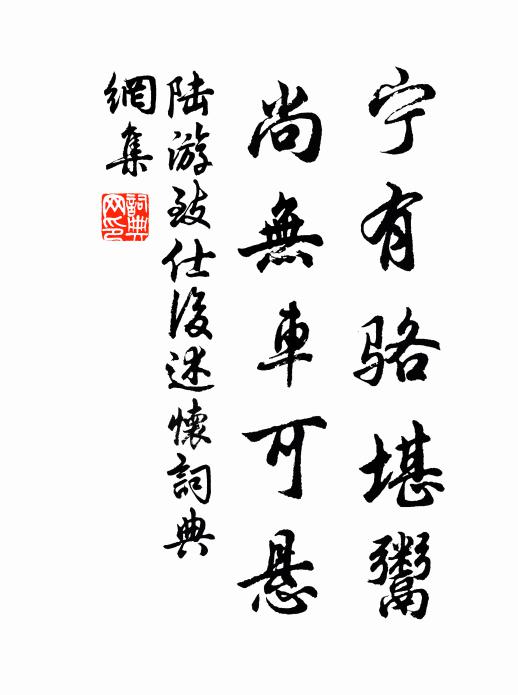 宁有骆堪鬻
尚無車可悬
陆游致仕後述懷詞典
網集
詞典
网印